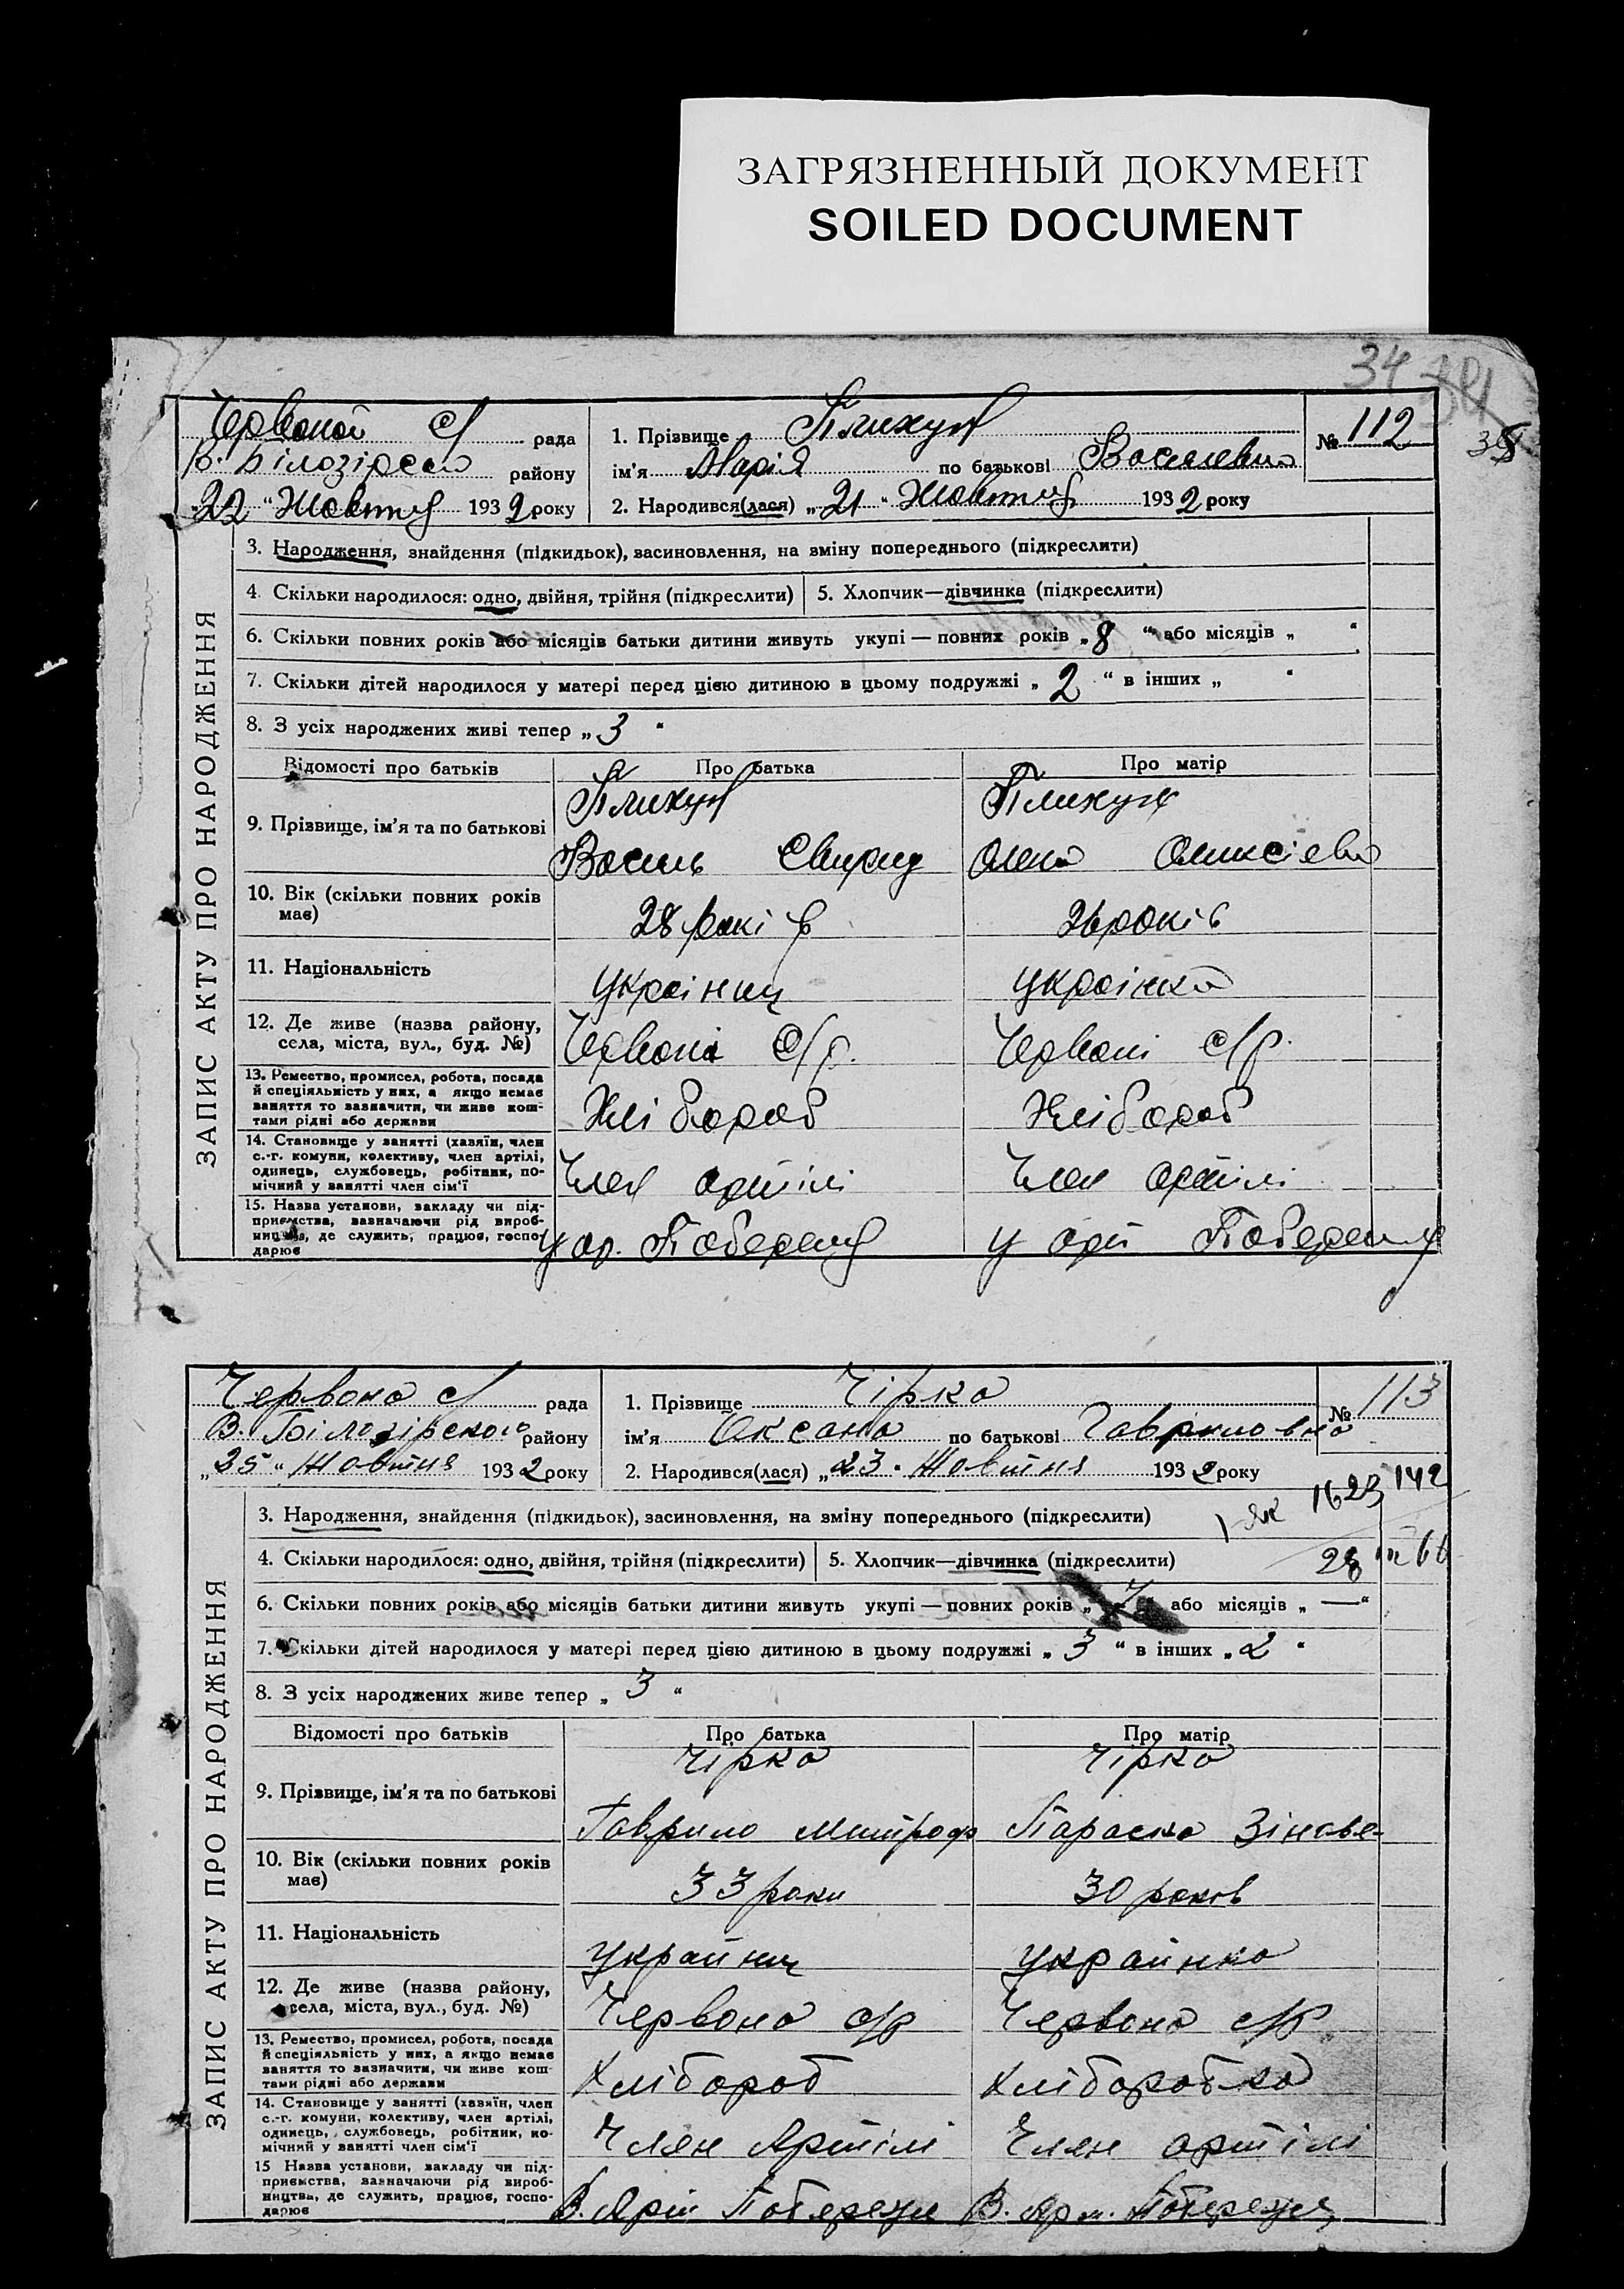 ЗАГРЯЗНЕННЫЙ ДОКУМЕНТ
SOILED DOCUMENT
34
Червоной с/ рада
В. Білозірсько району
22 " Жовтня 1932 року
1. Прізвище Плихун
ім'я Марія по батькові Василевно
2. Народився(лася) „21" Жовтня 1932 року
№ 112
38
ЗАПИС АКТУ ПРО НАРОДЖЕННЯ
3. Народження, знайдення (підкидьок), засиновлення, на зміну попереднього (підкреслити)
4. Скільки народилося: одно, двійня, трійня (підкреслити) 5. Хлопчик—дівчинка (підкреслити)
6. Скільки повних років або місяців батьки дитини живуть укупі — повних років „8 " або місяців „ "
7. Скільки дітей народилося у матері перед цією дитиною в цьому подружжі „ 2 " в інших „ "
8. З усіх народжених живі тепер „ 3 "
Відомості про батьків Про батька Про матір
9. Прізвище, ім'я та по батькові
Плихун Плихун
Василь Свирид Олена Олексієва
10. Вік (скільки повних років має)
28 років 26 років
11. Національність
українец українка
12. Де живе (назва району, села, міста, вул., буд. №)
Червоні с/р. Червоні с/р.
13. Ремество, промисел, робота, посада й спеціяльність у них, а якщо немає заняття то зазначити, чи живе коштами рідні або держави
Хлібороб Хлібороб
14. Становище у занятті (хазяїн, член с.-г. комуни, колективу, член артілі, одинець, службовець, робітник, помічний у занятті член сім'ї
Член артілі Член артілі
15. Назва установи, закладу чи підприємства, зазначаючи рід виробництва, де служить, працює, господарює
у ар. Побережя у арт Побережя
Червона с/ рада
В. Білозірського району
„25" Жовтня 1932 року
1. Прізвище Чірка
ім'я Оксана по батькові Гавриловна
2. Народився(лася) „23" Жовтня 1932 року
№ 113
1623 142
28
66
ЗАПИС АКТУ ПРО НАРОДЖЕННЯ
3. Народження, знайдення (підкидьок), засиновлення, на зміну попереднього (підкреслити)
4. Скільки народилося: одно, двійня, трійня (підкреслити) 5. Хлопчик—дівчинка (підкреслити)
6. Скільки повних років або місяців батьки дитини живуть укупі — повних років „ 7 " або місяців „ — "
7. Скільки дітей народилося у матері перед цією дитиною в цьому подружжі „ 3 " в інших „ 2 "
8. З усіх народжених живе тепер „ 3 "
Відомості про батьків Про батька Про матір
9. Прізвище, ім'я та по батькові
Чірка Чірка
Гаврило Митроф Параска Зінове-
10. Вік (скільки повних років має)
33 роки 30 років
11. Національність
украйнец украйнка
12. Де живе (назва району, села, міста, вул., буд. №)
Червона с/р Червона с/р
13. Ремество, промисел, робота, посада й спеціяльність у них, а якщо немає заняття то зазначити, чи живе коштами рідні або держави
Хлібороб Хліборобка
14. Становище у занятті (хазяїн, член с.-г. комуни, колективу, член артілі, одинець, службовець, робітник, помічний у занятті член сім'ї
Член Артілі Член артілі
15 Назва установи, закладу чи підприємства, зазначаючи рід виробництва, де служить, працює, господарює
В. Арт Побережя В. Арт. Побережя